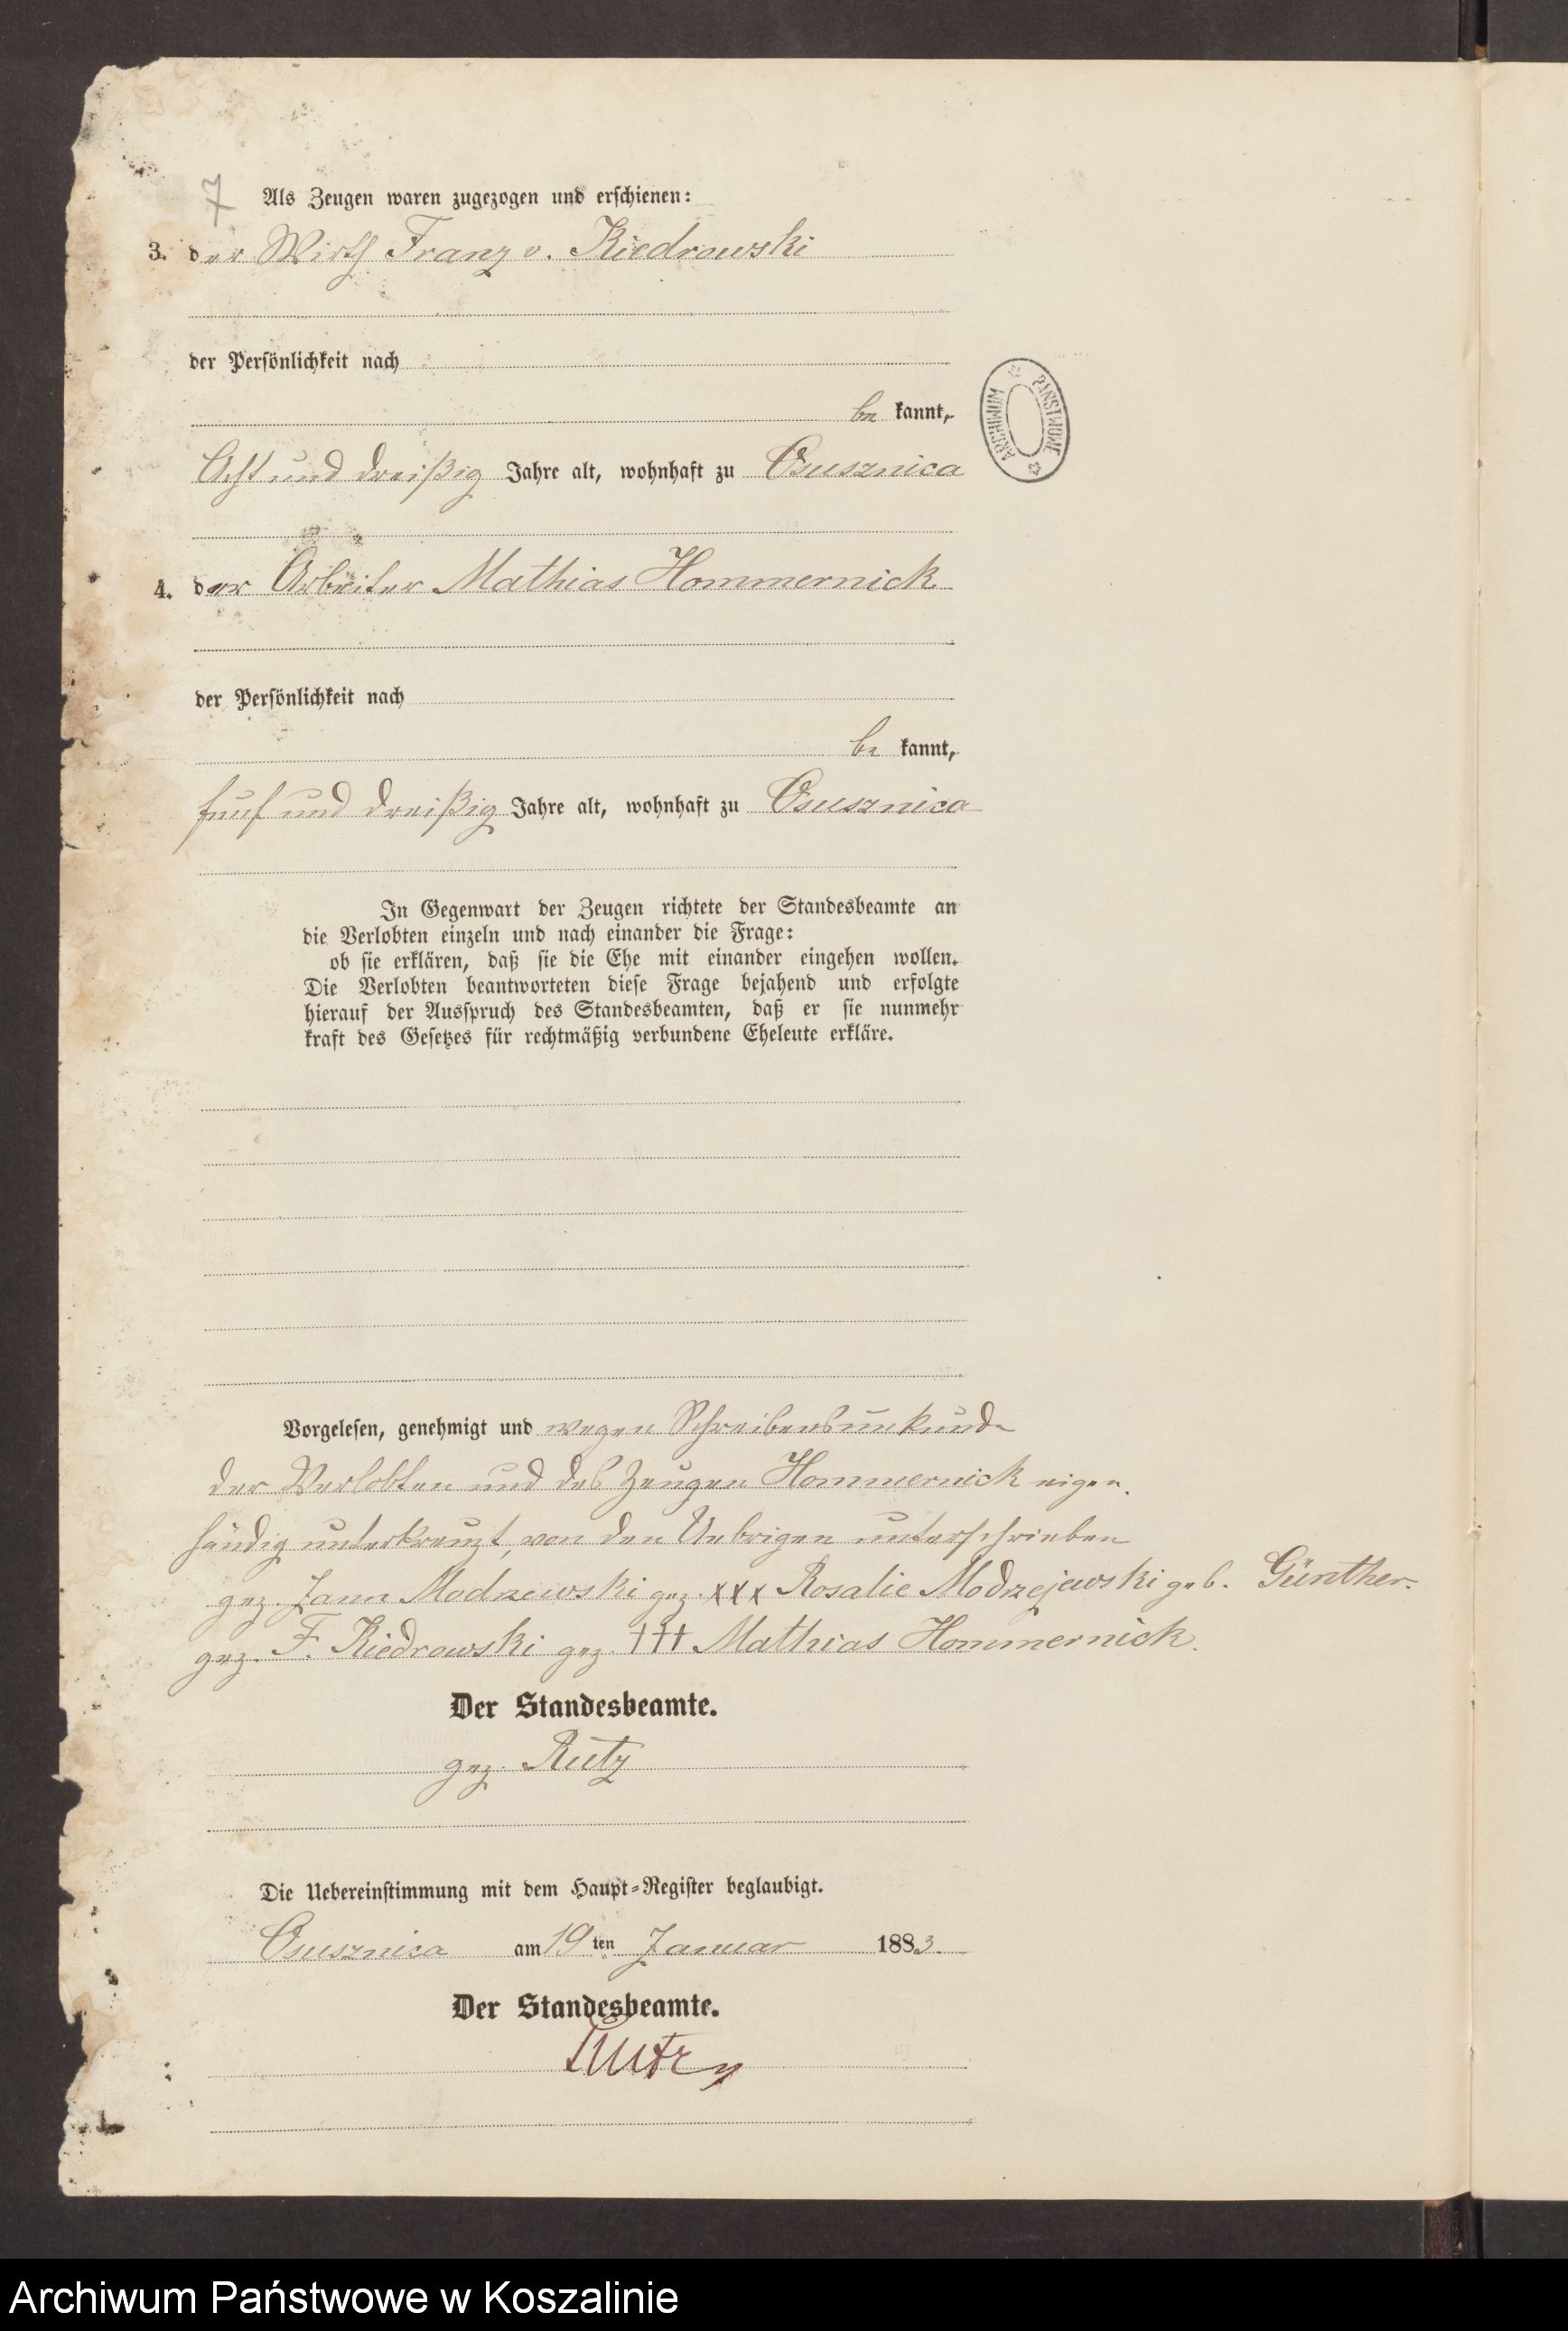 7 Als Zeugen waren zugezogen und erschienen:
3. der Wirth Franz v. Kiedrowski
der Persönlichkeit nach
be kannt,
Acht und dreißig Jahre alt, wohnhaft zu Osusznica
4. der Arbeiter Mathias Hommernick
der Persönlichkeit nach
be kannt,
fünf und dreißig Jahre alt, wohnhaft zu Osusznica
ARCHIWUM PAŃSTWOWE
In Gegenwart der Zeugen richtete der Standesbeamte an
die Verlobten einzeln und nach einander die Frage:
ob sie erklären, daß sie die Ehe mit einander eingehen wollen.
Die Verlobten beantworteten diese Frage bejahend und erfolgte
hierauf der Ausspruch des Standesbeamten, daß er sie nunmehr
kraft des Gesetzes für rechtmäßig verbundene Eheleute erkläre.
Vorgelesen, genehmigt und wegen Schreibensunkunde
der Verlobten und des Zeugen Hommernick eigen.
händig unterkreuzt, von den Uebrigen unterschrieben
gez. Jann Modrzewski gez. xxx Rosalie Modrzejewski geb. Günther.
gez. F. Kiedrowski gez. ††† Mathias Hommernick.
Der Standesbeamte.
gez. Rutz
Die Uebereinstimmung mit dem Haupt-Register beglaubigt.
Osusznica am 19 ten Januar 1883.
Der Standesbeamte.
Rutz
Archiwum Państwowe w Koszalinie